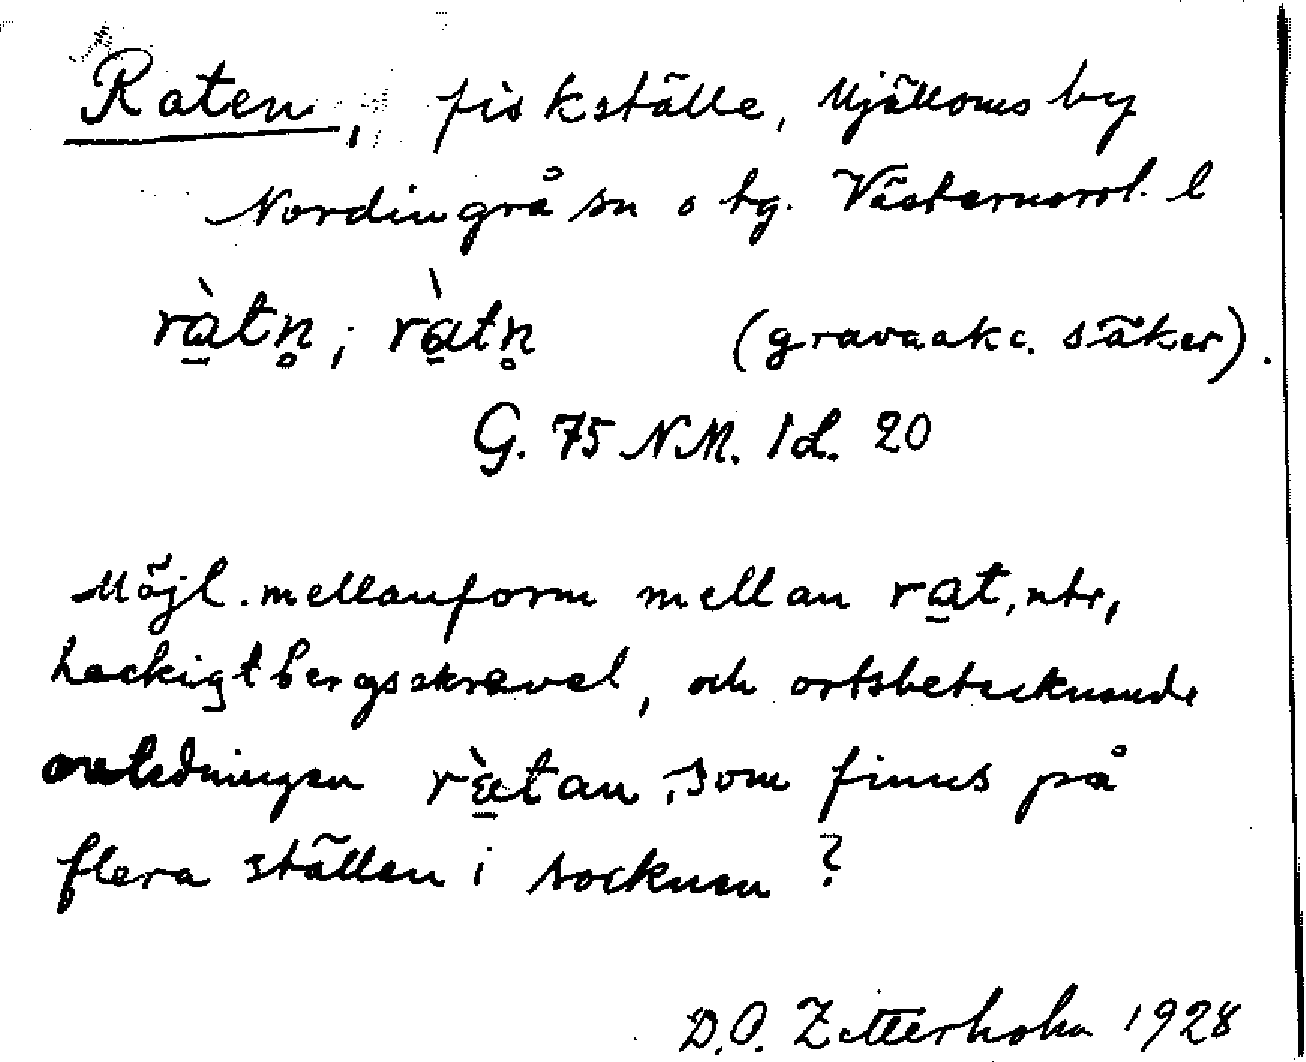 Raten, fiskställe, Mjälloms by
Nordingrå sn o tg. Västernorrl. l
rà̱tn̥ ; rà̱tn̥ (gravaakc. säker).
G. 75 NM. 1d. 20
Möjl. mellanform mellan ra̱t, ntr,
hackigt bergsskravel, och ortsbetecknande
avledningen rà̱tan, som finns på
flera ställen i socknen ?
D.O. Zetterholm 1928